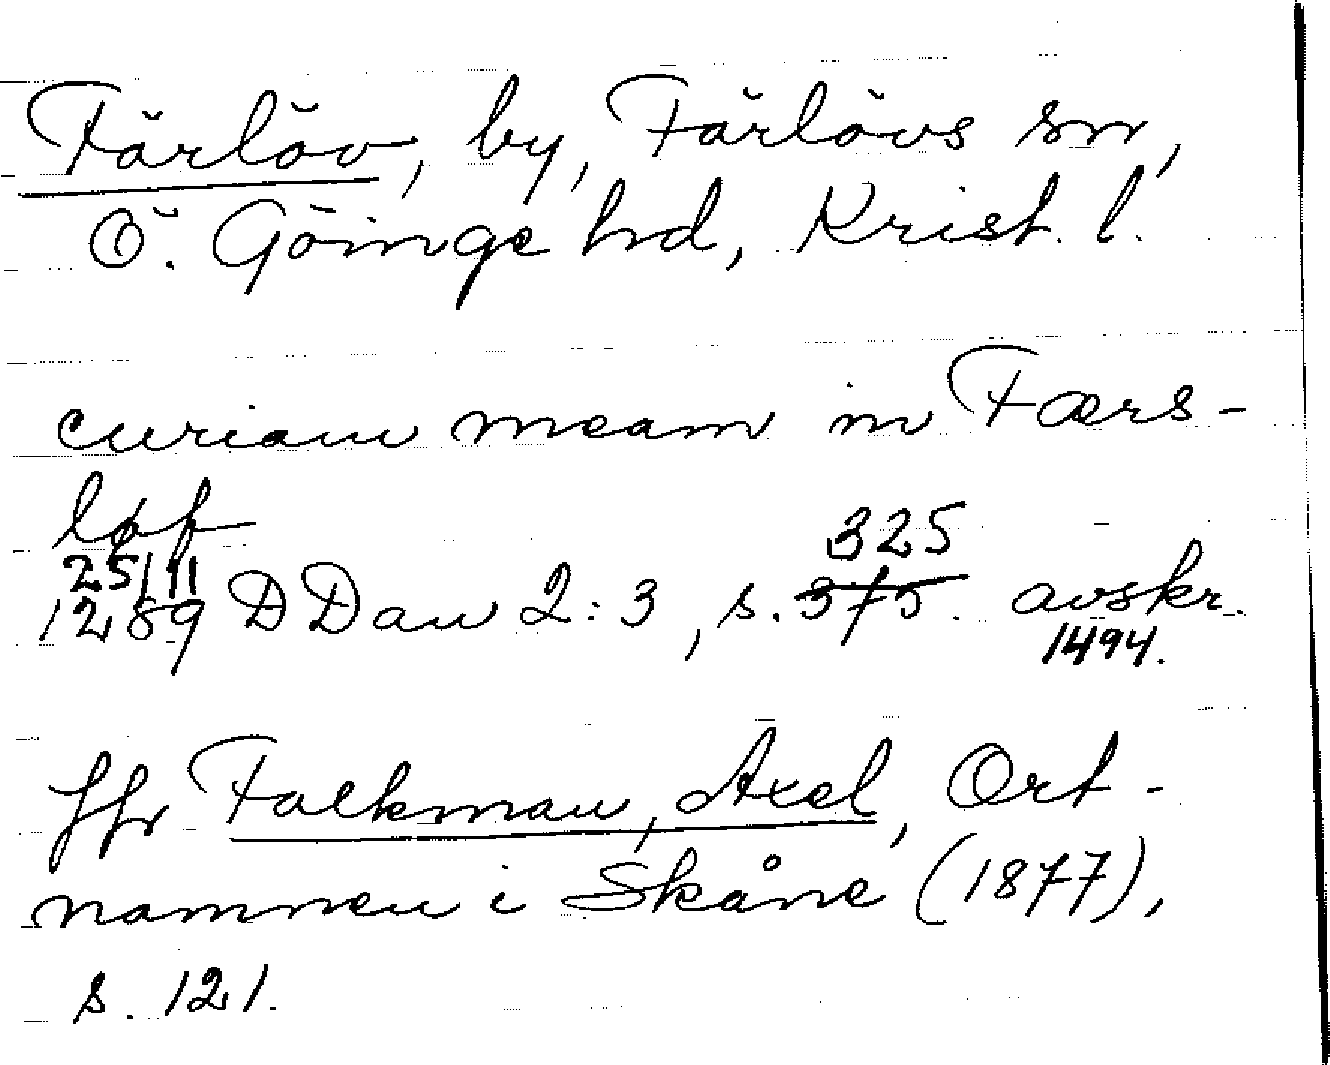 Färlöv, by, Färlövs sn,
Ö. Göinge hd, Krist. l.
curiam meam in Færs-
løf
25/11
1289 DDan 2:3, s. 375. 325 avskr.
1494.
Jfr Falkman, Axel, Ort-
namnen i Skåne (1877),
s. 121.